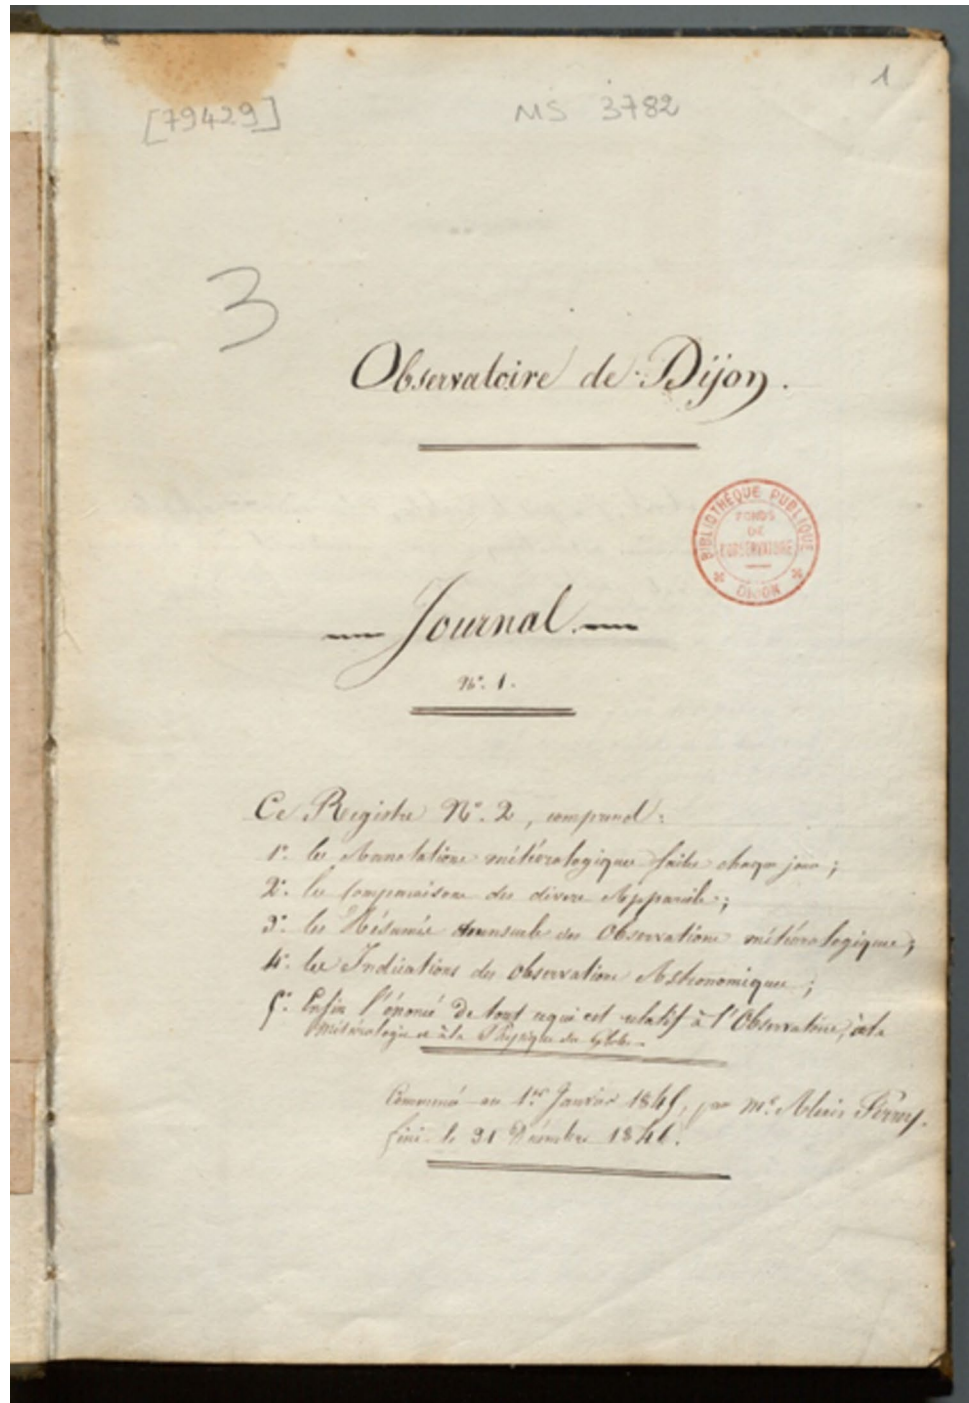 1
[79429]
MS 3782
3
Observatoire de Dijon.
BIBLIOTHÈQUE PUBLIQUE
FONDS
DE
L'OBSERVATOIRE
DIJON
Journal.
N°. 1.
Ce Registre N°. 2, comprend:
1°. les Annotations météorologiques faites chaque jour;
2°. les Comparaisons des divers Appareils;
3°. les Résumés mensuels des Observations météorologiques;
4°. les Indications des observations Astronomiques;
5°. Enfin l'énoncé de tout ce qui est relatif à l'Observatoire, à la
Météorologie et à la Physique du Globe.
Commencé au 1er Janvier 1845, par Mr. Alexis Perrey.
fini le 31 Décembre 1846.